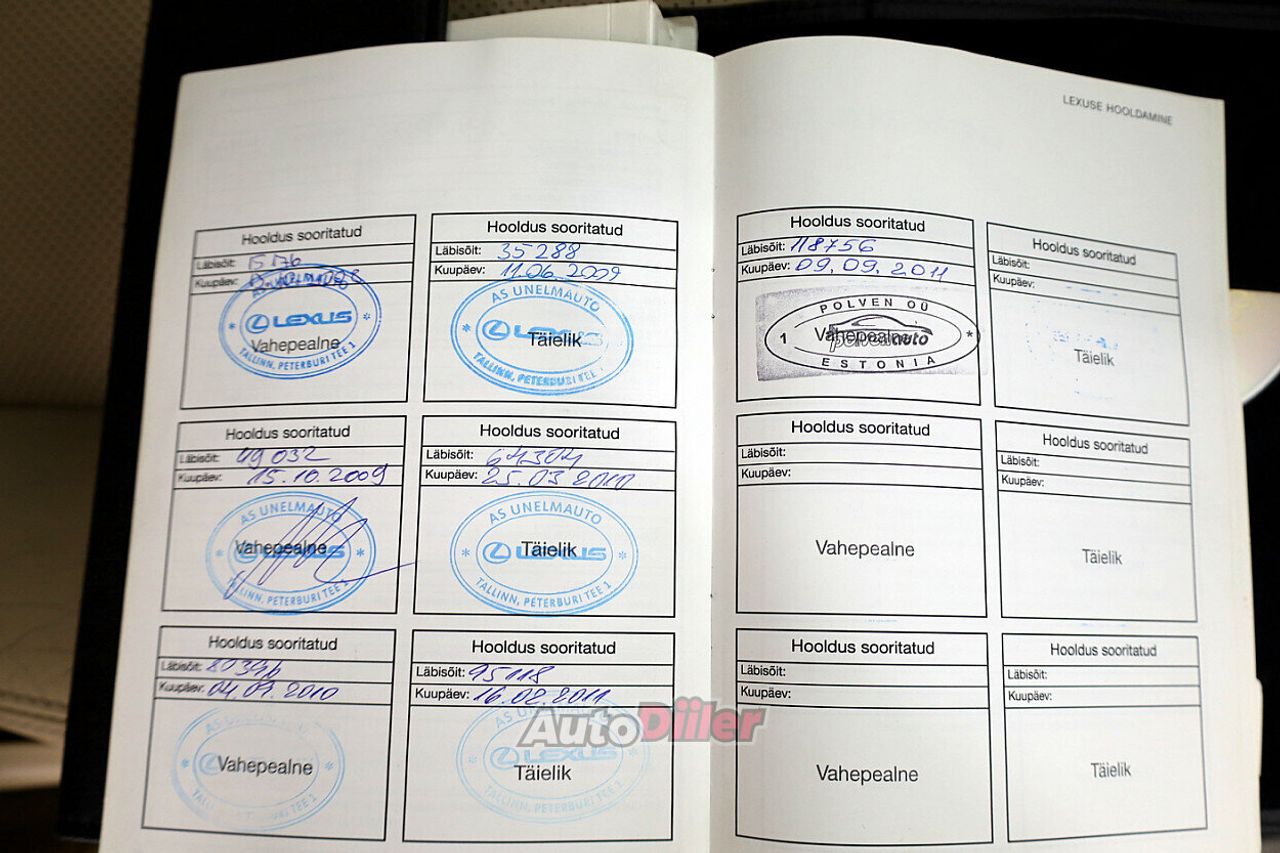 LEXUSE HOOLDAMINE
Hooldus sooritatud
Läbisõit: 15176
Kuupäev:
AS UNELMAUTO
LEXUS
Vahepealne
TALLINN, PETERBURI TEE 1
Hooldus sooritatud
Läbisõit: 35288
Kuupäev: 11.06.2009
AS UNELMAUTO
LEXUS
Täielik
TALLINN, PETERBURI TEE 1
Hooldus sooritatud
Läbisõit: 49032
Kuupäev: 15.10.2009
AS UNELMAUTO
LEXUS
Vahepealne
TALLINN, PETERBURI TEE 1
Hooldus sooritatud
Läbisõit: 64304
Kuupäev: 25.03.2010
AS UNELMAUTO
LEXUS
Täielik
TALLINN, PETERBURI TEE 1
Hooldus sooritatud
Läbisõit: 80396
Kuupäev: 04.09.2010
AS UNELMAUTO
Vahepealne
TEE 1
Hooldus sooritatud
Läbisõit: 95118
Kuupäev: 16.02.2011
AS UNELMAUTO
LEXUS
Täielik
TALLINN, PETERBURI TEE 1
Hooldus sooritatud
Läbisõit: 118756
Kuupäev: 09.09.2011
POLVEN OÜ
1 Vahepealne *
polvenauto
ESTONIA
Hooldus sooritatud
Läbisõit:
Kuupäev:
Täielik
Hooldus sooritatud
Läbisõit:
Kuupäev:
Vahepealne
Hooldus sooritatud
Läbisõit:
Kuupäev:
Täielik
Hooldus sooritatud
Läbisõit:
Kuupäev:
Vahepealne
Hooldus sooritatud
Läbisõit:
Kuupäev:
Täielik
AutoDiiler